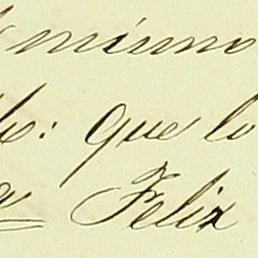 mismo
que lo
Felix